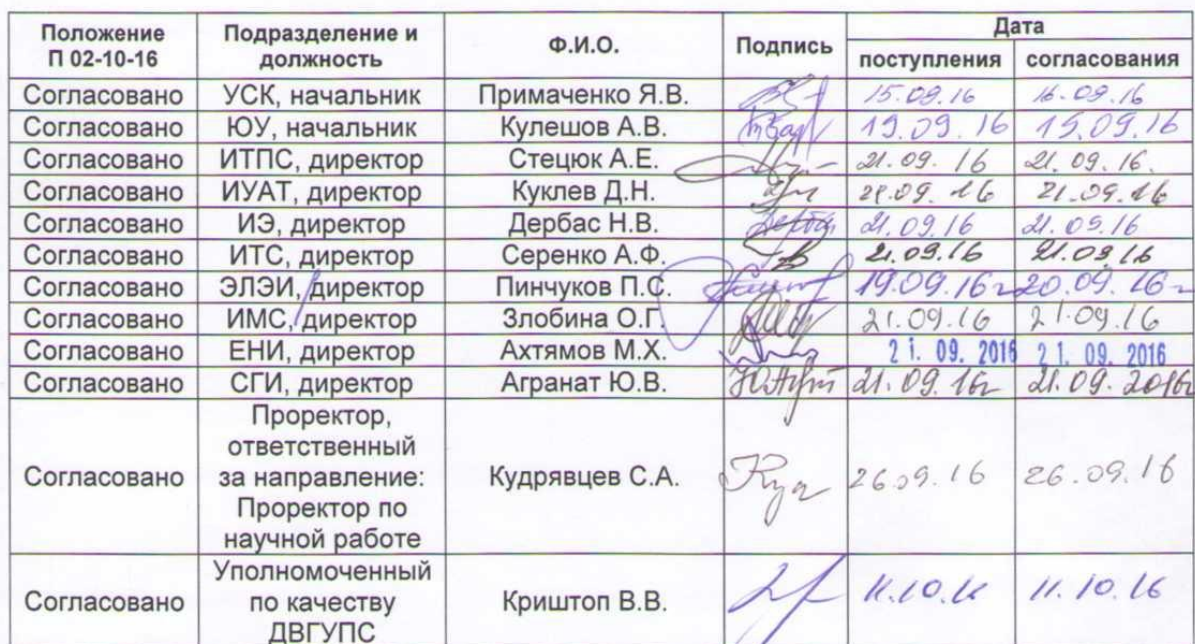 Положение П 02-10-16 Подразделение и должность Ф.И.О. Подпись Дата
поступления согласования
Согласовано УСК, начальник Примаченко Я.В. 15.09.16 16.09.16
Согласовано ЮУ, начальник Кулешов А.В. 19.09.16 19.09.16
Согласовано ИТПС, директор Стецюк А.Е. 21.09.16 21.09.16.
Согласовано ИУАТ, директор Куклев Д.Н. 21.09.16 21.09.16
Согласовано ИЭ, директор Дербас Н.В. 21.09.16 21.09.16
Согласовано ИТС, директор Серенко А.Ф. 21.09.16 21.09.16
Согласовано ЭЛЭИ, директор Пинчуков П.С. 19.09.16г 20.09.16г
Согласовано ИМС, директор Злобина О.Г. 21.09.16 21.09.16
Согласовано ЕНИ, директор Ахтямов М.Х. 21. 09. 2016 21. 09. 2016
Согласовано СГИ, директор Агранат Ю.В. 21.09.16г 21.09.2016г
Проректор,
ответственный
Согласовано за направление: Кудрявцев С.А. 26.09.16 26.09.16
Проректор по
научной работе
Уполномоченный
Согласовано по качеству Криштоп В.В. 11.10.16 11.10.16
ДВГУПС